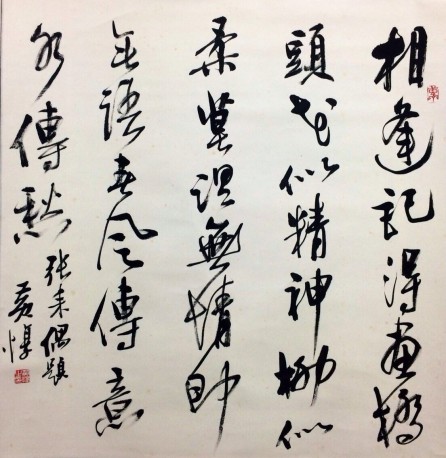 相逢記得畫橋
頭花似精神柳似
柔莫謂無情即
无語春風傳意
水傳愁
张耒偶題
黄惇